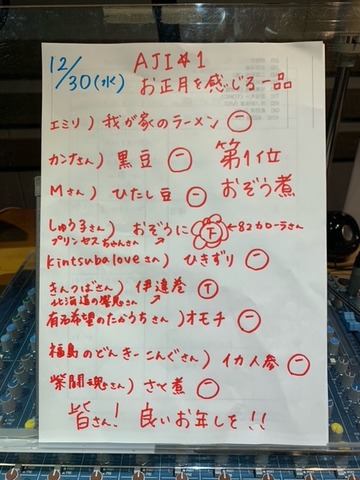 12/30(水) AJI#1
お正月を感じる一品
エミリ) 我が家のラーメン 一
カンナさん) 黒豆 一 第1位
Mさん) ひたし豆 一 おぞう煮
しゅう子さん) おぞうに 正 ←82カローラさん
プリンセスちゃんさん
kintsubaloveさん) ひきずり 一
きんつばさん) 伊達巻 T
北海道の響鬼さん
有名希望のたかうちさん) オモチ 一
福島のどんきーこんぐさん) イカ人参 一
紫闘魂さん) さく煮 一
皆さん! 良いお年しを!!